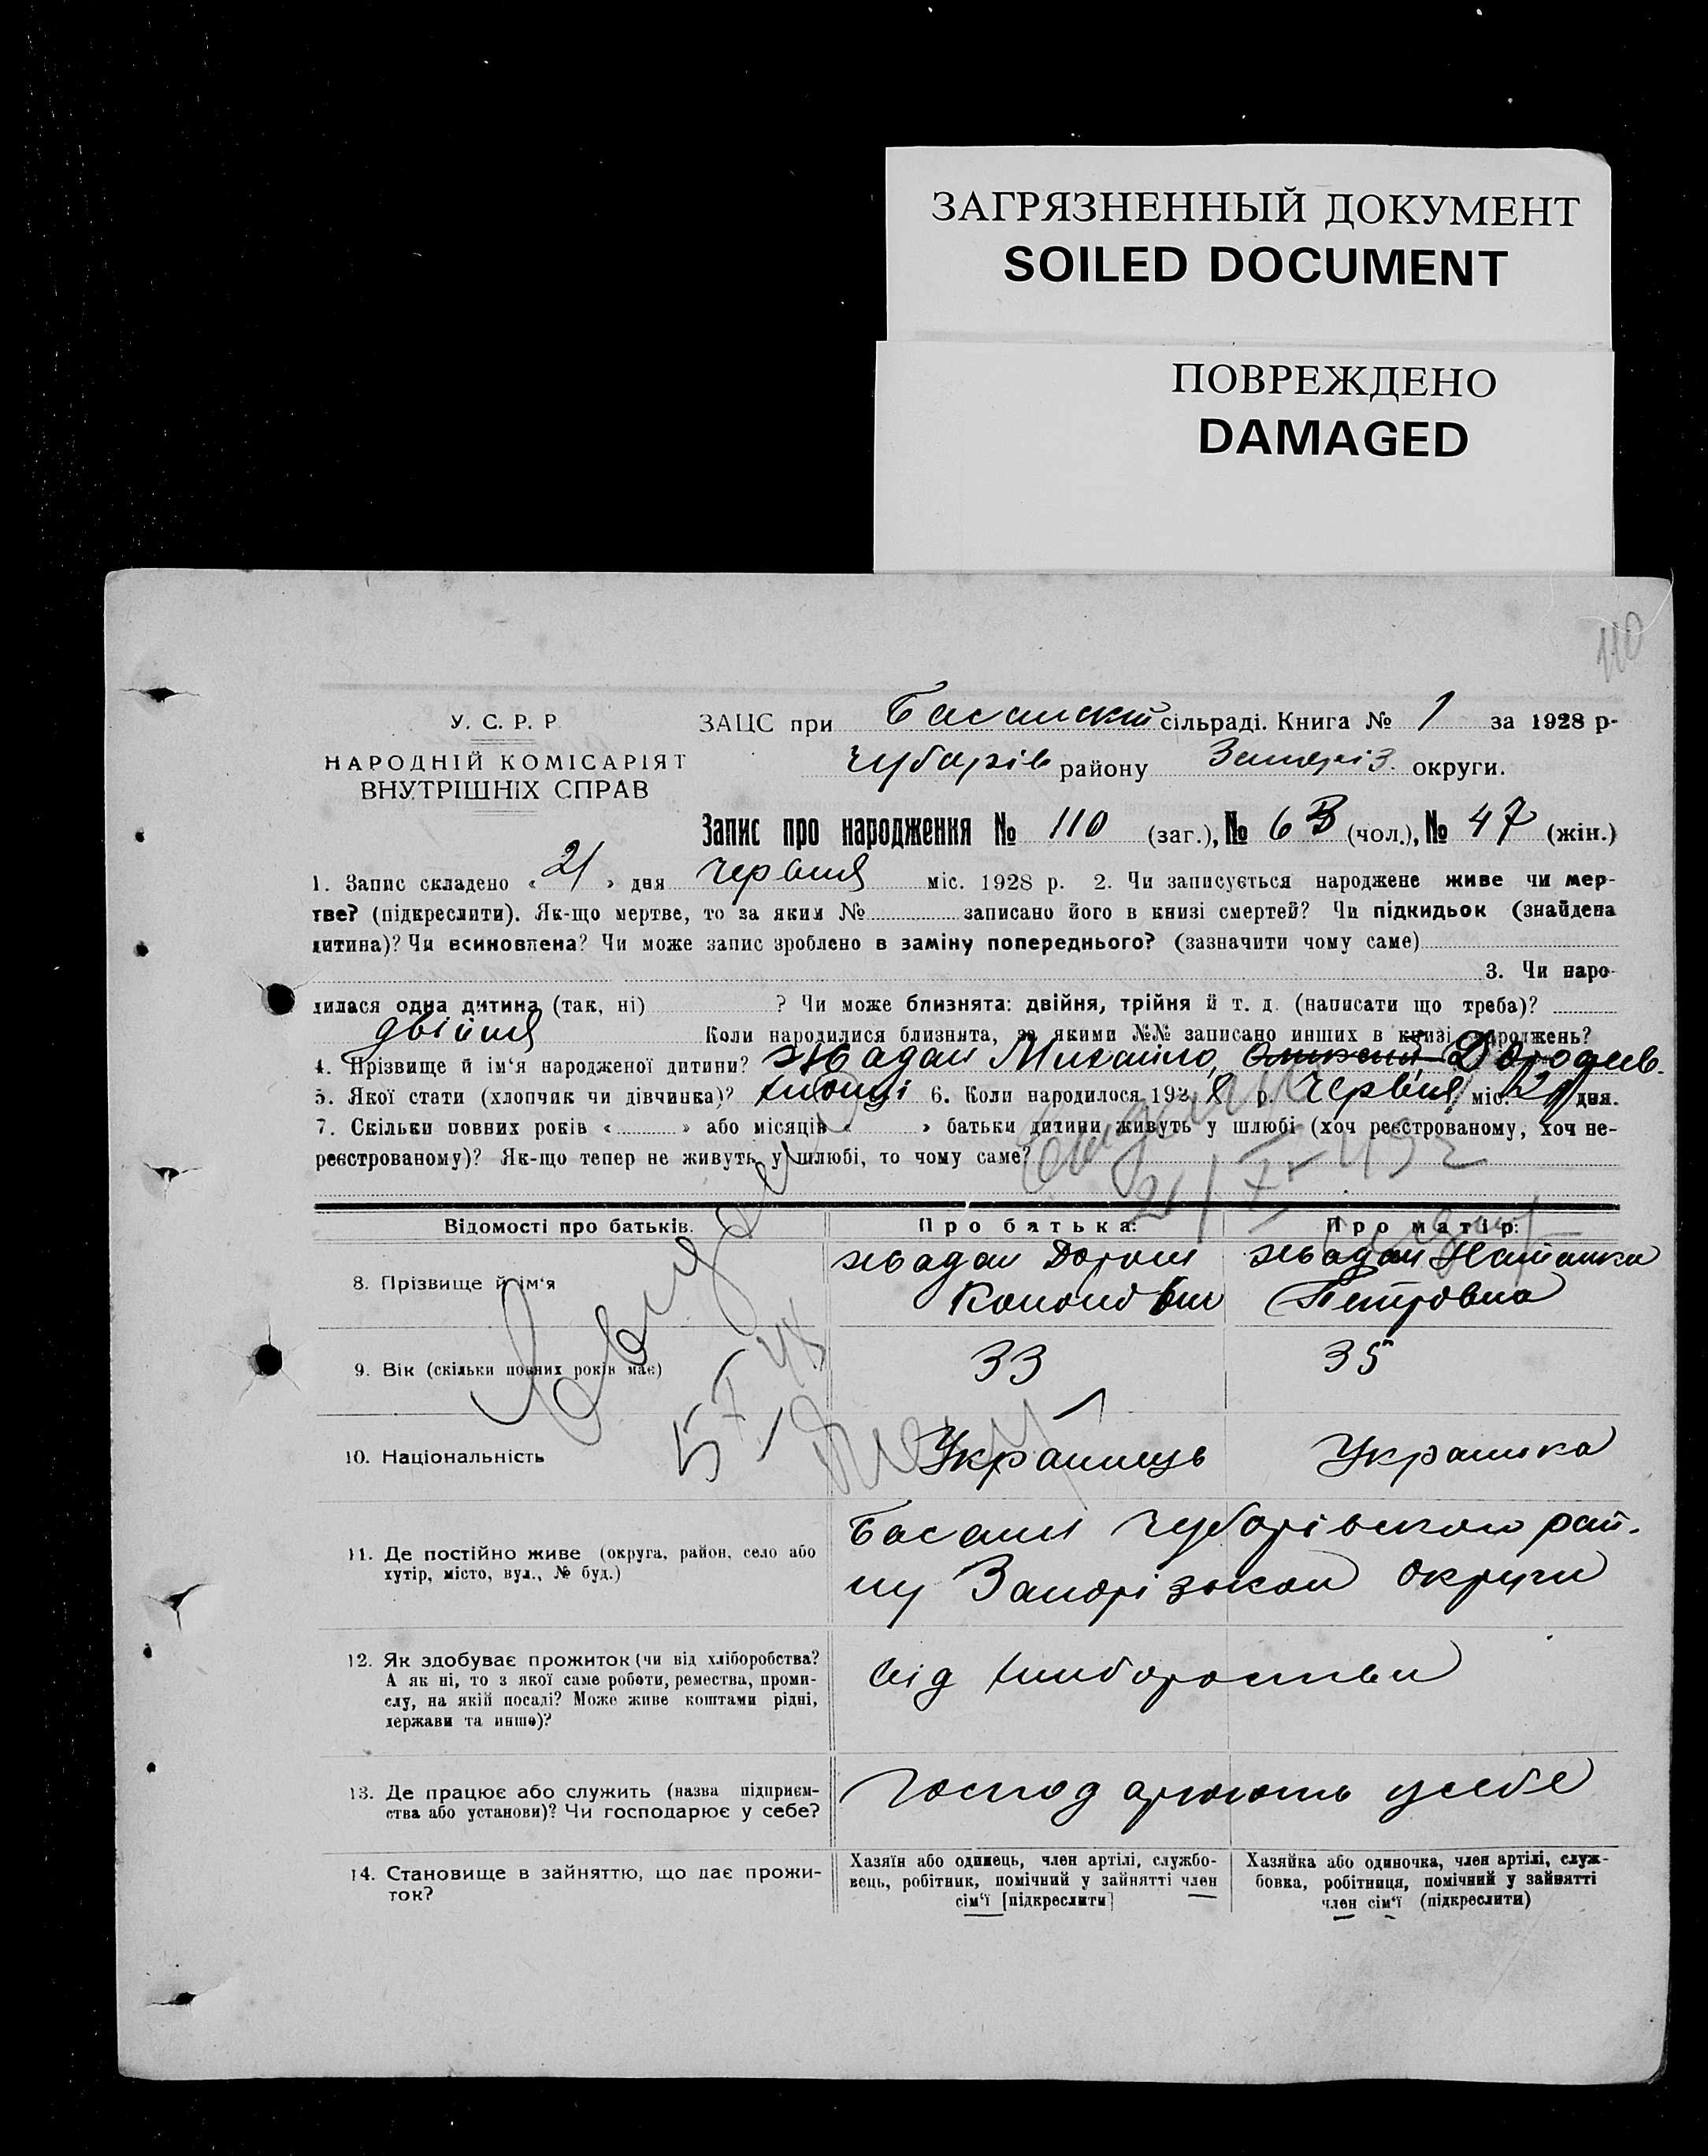 ЗАГРЯЗНЕННЫЙ ДОКУМЕНТ
SOILED DOCUMENT
ПОВРЕЖДЕНО
DAMAGED
110
У. С. Р. Р
НАРОДНІЙ КОМІСАРІЯТ
ВНУТРІШНІХ СПРАВ
ЗАЦС при Басанскій сільраді. Книга № 1 за 1928 р-
Чубарів району Запоріз. округи.
Запис про народження № 110 (заг.), № 63 (чол.), № 47 (жін.)
1. Запис складено « 21 » дня червня міс. 1928 р. 2. Чи записується народжене живе чи мер-
тве? (підкреслити). Як-що мертве, то за яким № записано його в книзі смертей? Чи підкидьок (знайдена
дитина)? Чи всиновлена? Чи може запис зроблено в заміну попереднього? (зазначити чому саме)
3. Чи наро-
дилася одна дитина (так, ні) ? Чи може близнята: двійня, трійня й т. д. (написати що треба)?
двійня Коли народилися близнята, за якими №№ записано инших в книзі народжень?
4. Прізвище й ім'я народженої дитини? Жадан Михайло,
5. Якої стати (хлопчик чи дівчинка)? хлопці 6. Коли народилося 1928 р. Червня міс. 21 дня.
7. Скільки повних років « » або місяців « » батьки дитини живуть у шлюбі (хоч реєстрованому, хоч не-
реєстрованому)? Як-що тепер не живуть у шлюбі, то чому саме?
Відомості про батьків. Про батька: Про матір:
8. Прізвище й ім'я Жадан Жадан Наталка
Петровна
9. Вік (скільки повних років має) 33 35
10. Національність Українець Українка
11. Де постійно живе (округа, район, село або
хутір, місто, вул., № буд.)
Басань Чубарівського рай-
ну Запорізькои Округи
12. Як здобуває прожиток (чи від хліборобства?
А як ні, то з якої саме роботи, ремества, проми-
слу, на якій посаді? Може живе коштами рідні,
держави та инше)?
від
13. Де працює або служить (назва підприєм-
ства або установи)? Чи господарює у себе?
Господарюють у себе
14. Становище в зайняттю, що дає прожи-
ток?
Хазяїн або одинець, член артілі, службо-
вець, робітник, помічний у зайнятті член
сім'ї [підкреслити]
Хазяйка або одиночка, член артілі, служ-
бовка, робітниця, помічний у зайнятті
член сім'ї (підкреслити)